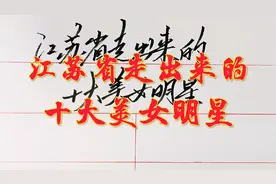 江苏省走出来的
十大美女明星
江苏省走出来的
十大美女明星